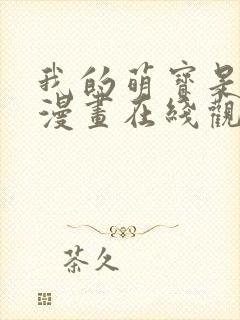 我的萌寶呆
漫畫在綫觀
茶久